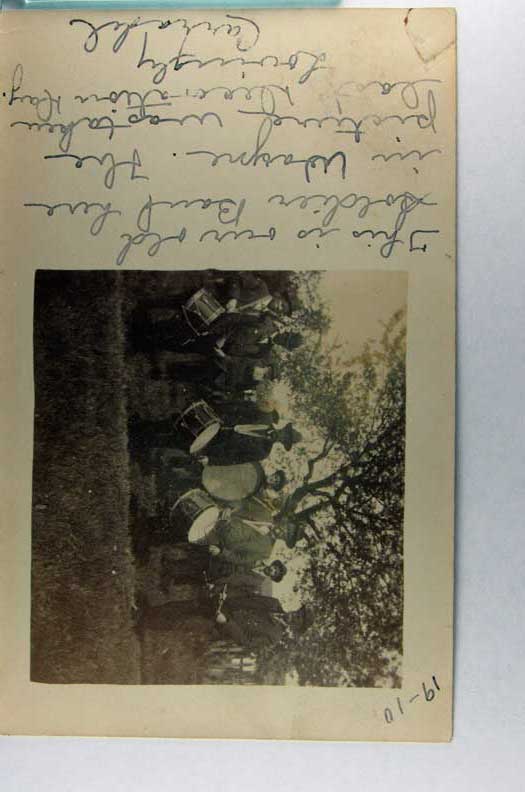 This is our old
Soldier Band here
in Wayne. The
picture was taken
last Decoration Day.
Lovingly
19-10